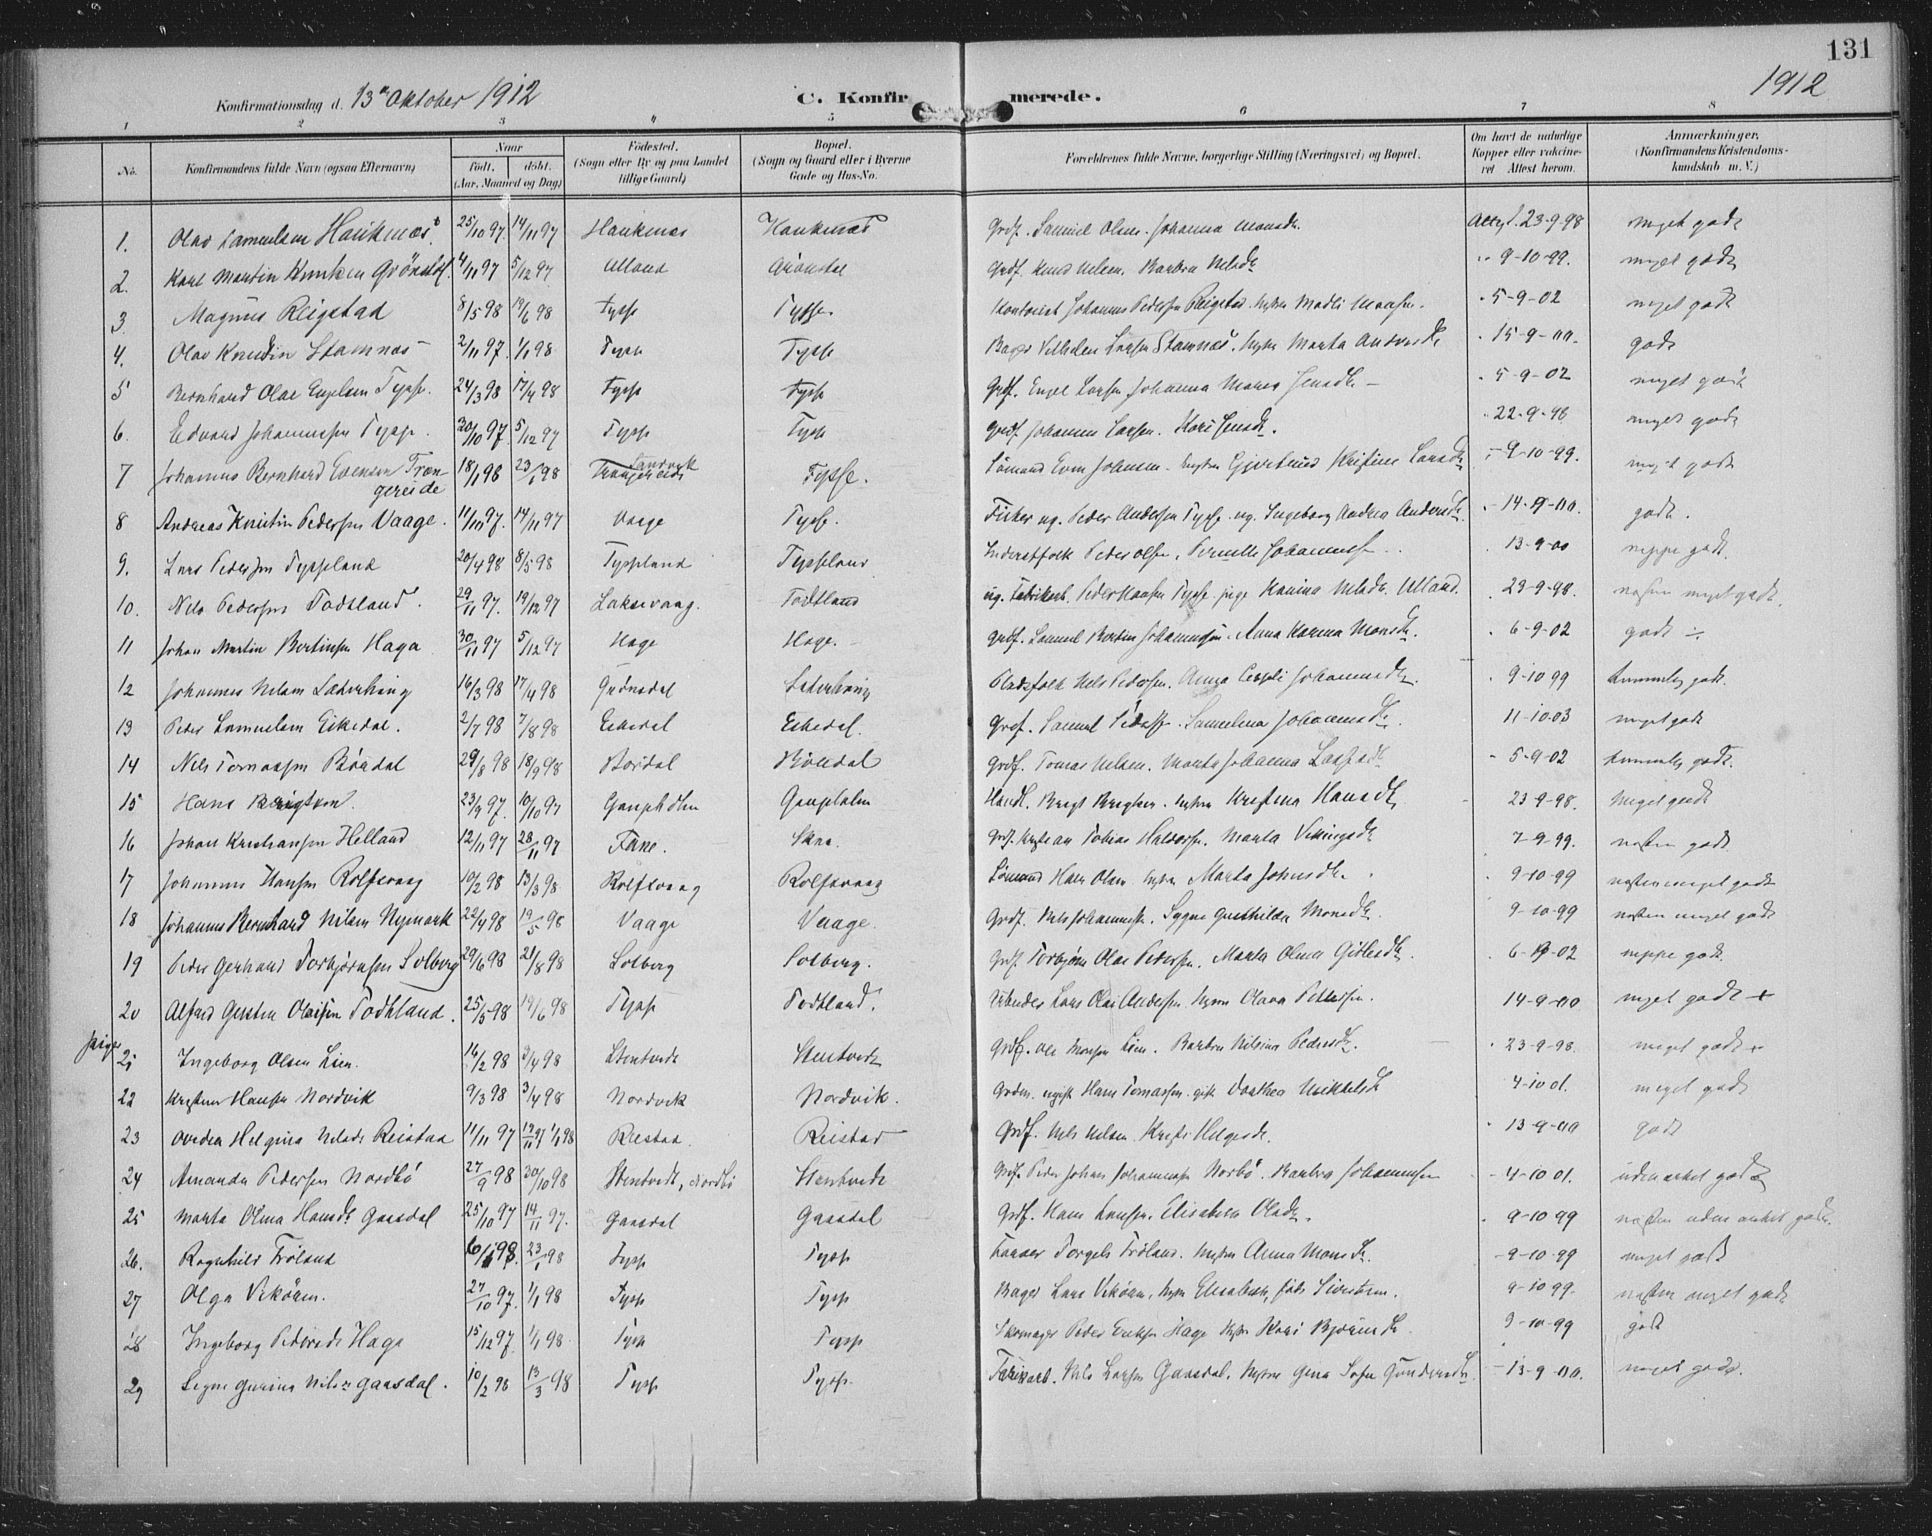 131
Konfirmationsdag d. 13de Oktober 1912 C. Konfirmerede. 1912
1 2 3 4 5 6 7 8
No. Konfirmandens fulde Navn (ogsaa Efternavn) Naar født. døbt. (Aar, Maaned og Dag) Fødested. (Sogn eller By og paa Landet tillige Gaard) Bopæl. (Sogn og Gaard eller i Byerne Gade og Hus-No. Forældrenes fulde Navne, borgerlige Stilling (Næringsvei) og Bopæl. Om havt de naturlige Kopper eller vaccineret Attest herom. Anmærkninger, (Konfirmandens Kristendomskundskab m. V.)
1. Olav Samuelsen Haukenæs 25/10 97. 14/11 97 Haukenæs Haukenæs Grdf. Samuel Olsen. Johanna Monsdtr. 23-9-98 meget godt
2. Karl Martin Knutsen Grønsdal. 4/11 97 5/12 97 Ulland Grønsdal Grdf. Knud Nelsen. Barbra Nelsdtr 9-10-99. meget godt
3. Magnus Reigstad 8/5 98 19/6 98 Tysse Tysse. Kontorist Johannes Pedersen Reigstad. hustru Madli 5-9-02 meget godt
4. Olav Knudin Stamnæs 2/11 97. 1/1 98 Tysse Tysse Bager Vilhelm Larsen Stamnæs. hustru Marta Andersdtr 15-9-00. godt
5 Bernhard Olai Engelsen Tysse. 24/3 98 17/4 98 Tysse Tysse Grdf. Engel Larsen Johanna Maria Jensdtr. 5-9-02 meget godt
6. Edvard Johannessen Tysse. 30/10 97. 5/12 97 Tysse Tysse Grdf. Johannes Larsen. Kari Jensdtr. 22-9-98 meget godt
7 Johannes Bernhard Evensen Trængereide 18/1 98 23/1 98 Trængereide Sandvik Tysse. Sømand Even Johansen. hustru Gjertrud Kristine Larsdtr 9-10-99. meget godt
8 Andreas Kristin Pedersen Vaage. 11/10 97. 14/11 97 Vaage Tysse. Fisker ug. Peder Andersen Tysse. ug. Ingeborg Andrea Andersdtr. 14-9-00. godt.
9. Lars Pedersen Tyssland 20/4 98 8/5 98 Tyssland Tyssland Inderstfolk Peder Olsen, Pernille Johannesd 13-9-00 neppe godt.
10. Nils Pedersen Todtland. 29/11 97. 19/12 97 Laksevaag. Todtland ug. Fabrikarb. Peder Hansen Tysse pige Karina Nelsdtr. Ulland. 23-9-98. næsten meget godt.
11 Johan Martin Bertinsen Haga 30/11 97 5/12 97 Hage Hage. Grdf. Samuel Bertin Johannessen. Anna Karina Monsdtr. 6-9-02 godt
12 Johannes Nelsen Læderhaug 16/3 98 17/4 98 Grønsdal Læderhaug Pladsfolk Nels Pedersen. Anna Johannesdtr. 9-10-99 temmelig godt.
13 Peder Samuelsen Eikedal. 2/7 98 7/8 98 Eikedal Eikedal. Grdf. Samuel Pedersen. Samuelina Johannesdtr. 11-10-03 meget godt
14 Nils Tomassen Børdal 29/8 98 18/9 98 Børdal Børdal Grdf. Tomas Nelsen. Marta Johanna 5-9-02 temmelig godt.
15 Hans Brigtsen. 23/9 97. 10/10 97 Gaupholm Gaupholm Handl. Brigt Brigtsen. hustru Kristina Hansdtr 23-9-98. Meget godt
16 Johan Kristiansen Helland 12/11 97 28/11 97 Fane. Grdf. Kristian Tobias Haldorsen. Marta Vikingsdtr 7-9-99. næsten godt.
17 Johannes Hansen Rolfsvaag 10/2 98 13/3 98 Rolfsvaag Rolfsvaag Sømand Hans Olsen. hustru Marta Johnsdtr. 9-10-99 næsten meget godt
18 Johannes Bernhard Nilsen Nymark 22/4 98 19/5 98 Vaage Vaage. Grdf. Nels Johannessen. Sygne Monsdtr. 9-10-99 næsten meget godt
19 Peder Gerhard Torbjørnsen Solberg 29/6 98 21/8 98 Solberg Solberg. Grdf. Torbjørn Olai Pedersen. Marta Olina Gitlesdtr. 6-9-02 neppe godt.
20 Alfred Gerstin Olaisen Todtland. 25/5 98 19/6 98 Tysse Todtland. Lars Olai Andersen hustru Olava Pettersen. 14-9-00 meget godt +
piger
21 Ingeborg Olsen Lien. 16/2 98 3/4 98 Stentvedt Stentvedt Grdf. Ole Monsen Lien. Barbra Nilsine Pedersdtr. 23-9-98. meget godt +
22 Kristine Hansen Nordvik 9/3 98 3/4 98 Nordvik Nordvik. Grdm. ugift Hans Tomassen. gift Dorthea Mikkelsdtr 4-10 01. meget godt
23 Ovedia Helgina Nelsdtr Reistad 11/11 97 1/1 98 Reistad. Reistad Grdf. Nels Nelsen Kristi Helgesdtr. 13-9-00 godt
24 Amanda Pedersen Nordbø 27/9 98 30/10 98 Stentvedt, Nordbø Stentvedt Grdf. Peder Johan Johannesen Norbø. Barbra Johannesen 4-10 01. udmærket godt
25 Marta Olina Hansdtr Gaasdal 25/10 97 14/11 97. Gaasdal Gaasdal Grdf. Hans Larssen. Elisabeta Olsdtr. 9-10-99 næsten udmærket godt.
26. Ragnhild Frøland 6/1 98. 23/1 98 Tysse Tysse Torgels Frøland. hustru Anna Monsdtr. 9-10-99 meget godt
27 Olga Vikøren. 27/10 97. 1/1 98 Tysse Tysse Bager Lars Vikøren, hustru Elisabeth, født Sivertsen. 9-10-99. næsten meget godt
28 Ingeborg Pedersdtr Hage 15/12 97. 1/1 98 Tysse Tysse Skomager Peder Eriksen Hage hustru Kari Bjørnsdtr. 9-10-99 godt
29 Signe Gurina Nilsen Gaasdal. 10/2 98 13/3 98 Tysse Tysse Fabrikarb. Nils Larsen Gaasdal. hustru Gina Sofie Gundersdtr. 13-9-00. meget godt.